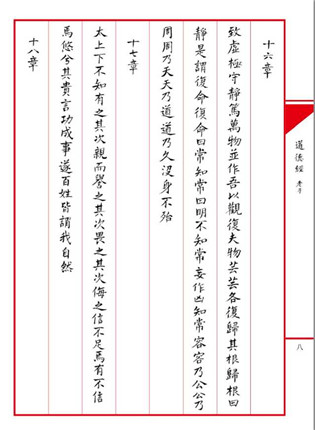 道德經 老子
八
十六章
致虛極守靜篤萬物並作吾以觀復夫物芸芸各復歸其根歸根曰
靜是謂復命復命曰常知常曰明不知常妄作凶知常容容乃公公乃
周周乃天天乃道道乃久沒身不殆
十七章
太上下不知有之其次親而譽之其次畏之其次侮之信不足焉有不信
焉悠兮其貴言功成事遂百姓皆謂我自然
十八章